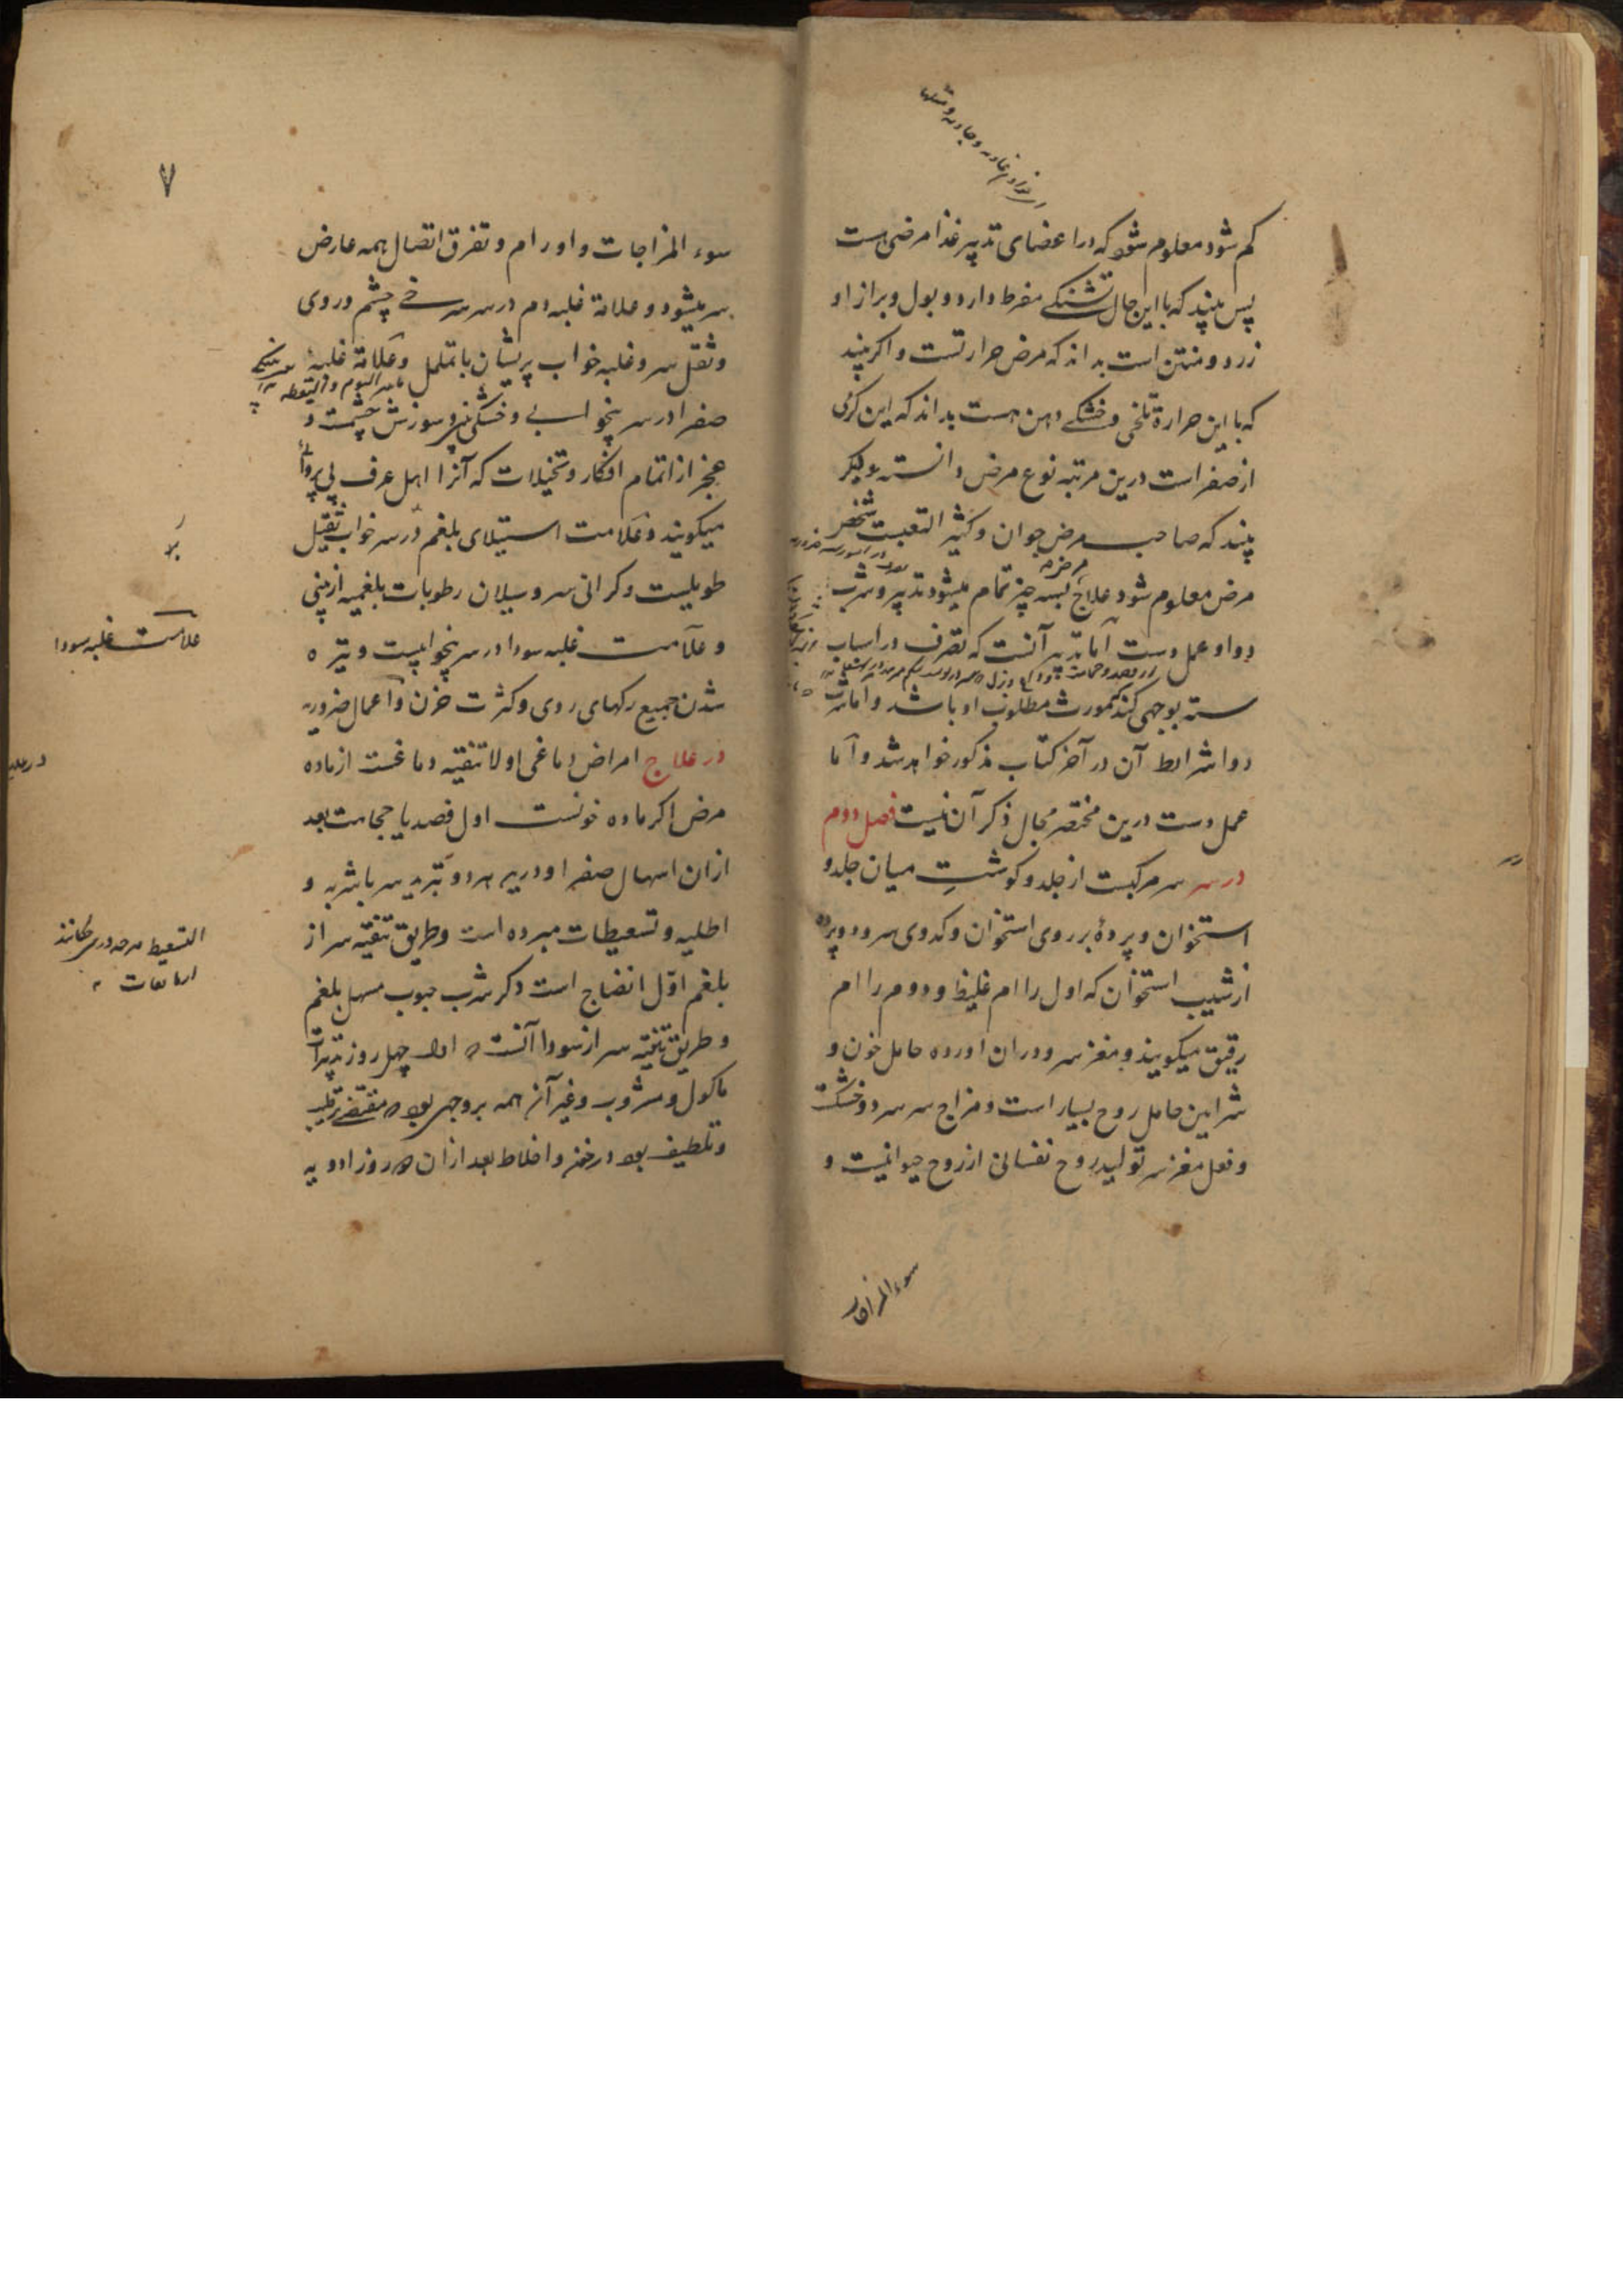 کم شود معلوم شود که در اعضای تدبیر غذا مرضی هست
پس بیند که با این حال تشنکی مفرط دارد و بول و براز او
زرد و منتن است بداند که مرض حرارتست و اکر بیند
که با این حرارة تلخی و خشکی دهن هست بداند که این کرمی
از صفراست درین مرتبه نوع مرض دانسته دیکر
بیند که صاحب مرض جوان و کثیر التعبست شخص
مرض معلوم شود علاج بسه چیز تمام میشود تدبیر و شرب
دوا و عمل دست اما تدبیر آنست که تصرف در اسباب
سته بوجهی کند که مورث مطلوب او باشد و اما شرب
دوا شرایط آن در آخر کتاب مذکور خواهد شد و اما
عمل دست درین مختصر مجال ذکر آن نیست فصل دوم
در سر سر مرکبست از جلد و کوشت میان جلد و
استخوان و پردهٔ بر روی استخوان و کدوی سر و دو پرده
از شیب استخوان که اول را ام غلیظ و دوم را ام
رقیق میکویند و مغز سر و دران اورده حامل خون و
شراین حامل روح بسیار است و مزاج سر سرد و خشکست
و فعل مغز سر تولید روح نفسانی از روح حیوانیست و
سوء المزاجات
۷
سوء المزاجات و اورام و تفرق اتصال همه عارض
سر میشود و علامة غلبه دم در سر سرخی چشم و روی
و ثقل سر و غلبه خواب پریشان با تململ و علامة غلبهٔ
صفرا در سر بیخوابی و خشکی بینی و سوزش چشمست و
عجز از اتمام افکار و تخیلات که آنرا اهل عرف بی پروائی
میکویند و علامت استیلای بلغم در سر خواب ثقیل
طویلیست و کرانی سر و سیلان رطوبات بلغمیه از بینی
و علامت غلبه سودا در سر بیخوابیست و تیره
شدن جمیع رکهای روی و کثرت حزن و اعمال ضروریه
در علاج امراض دماغی اولا تنقیه دماغست از ماده
مرض اکر ماده خونست اول فصد یا حجامت بعد
ازان اسهال صفرا و درین هر دو تبرید سر باشربه و
اطلیه و تسعیطات مبرده است و طریق تنقیه سر از
بلغم اوّل انضاج است دکر شرب حبوب مسهل بلغم
و طریق تنقیه سر از سودا آنست که اول چهل روز تدبیرات
ماکول و مشروب و غیر آن همه بر وجهی بود که مقتضی ترطیب
و تلطیف بود در خون و اخلاط بعد ازان که روز ادویه
علامت غلبه سودا